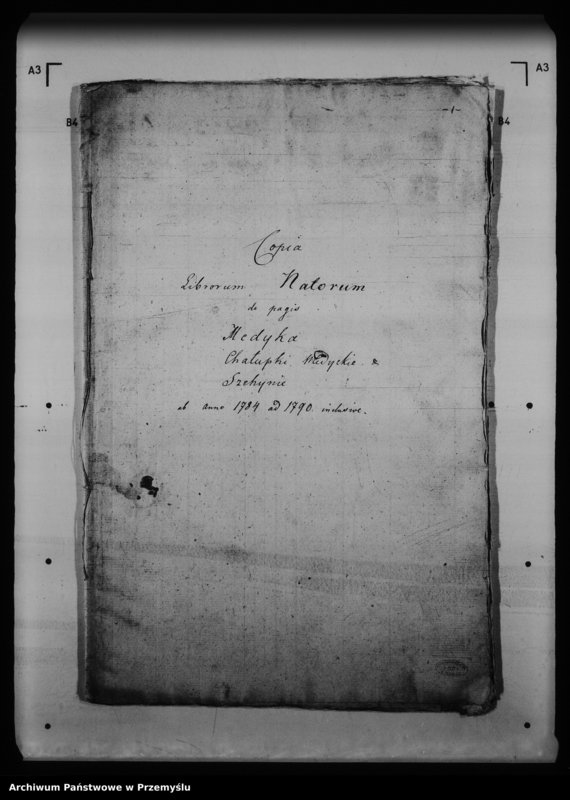 A3
A3
B4
B4
-1-
Copia
Librorum Natorum
de pagis
Medyka
Chałupki Medyckie &
Szehynie
ab anno 1784 ad 1790 inclusive.
Archiwum Państwowe w Przemyślu